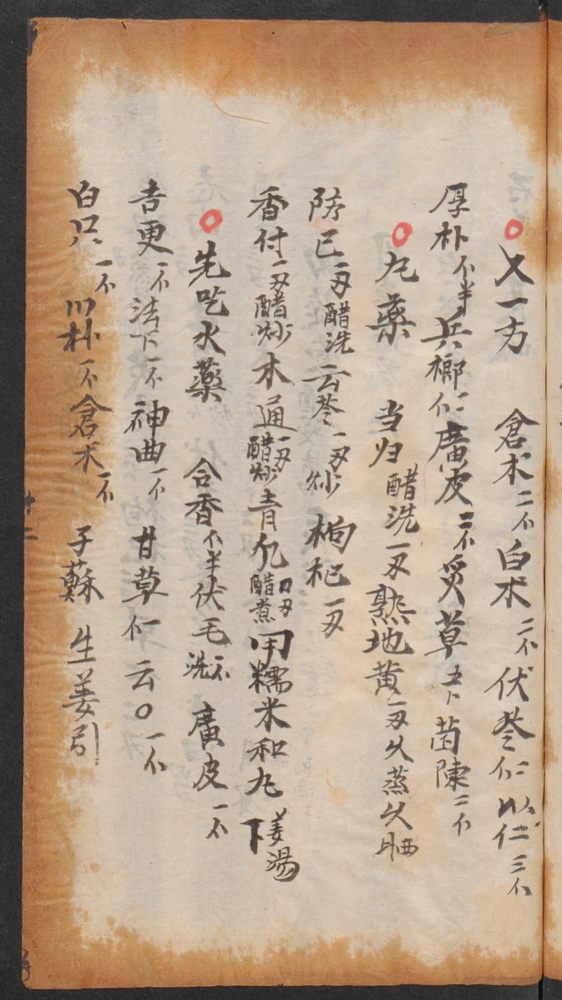 又一方 倉木二个白术二个伏苓仁以仁三个
厚朴个半兵榔仁廣皮二个炙草五下茵陳二个
九藥 当归醋洗一刄熟地黄一刄久蒸久晒
防已一刄醋洗云苓一刄炒枸杞一刄
香付一刄醋炒木通一刄醋炒青皮四刄醋煮用糯米和九姜湯下
先吃水藥 合香个半伏毛一个洗廣皮一个
吉更一个法下一个神曲一个甘草仁云〇一个
白只一个川朴一个倉术一个子蘇生姜引